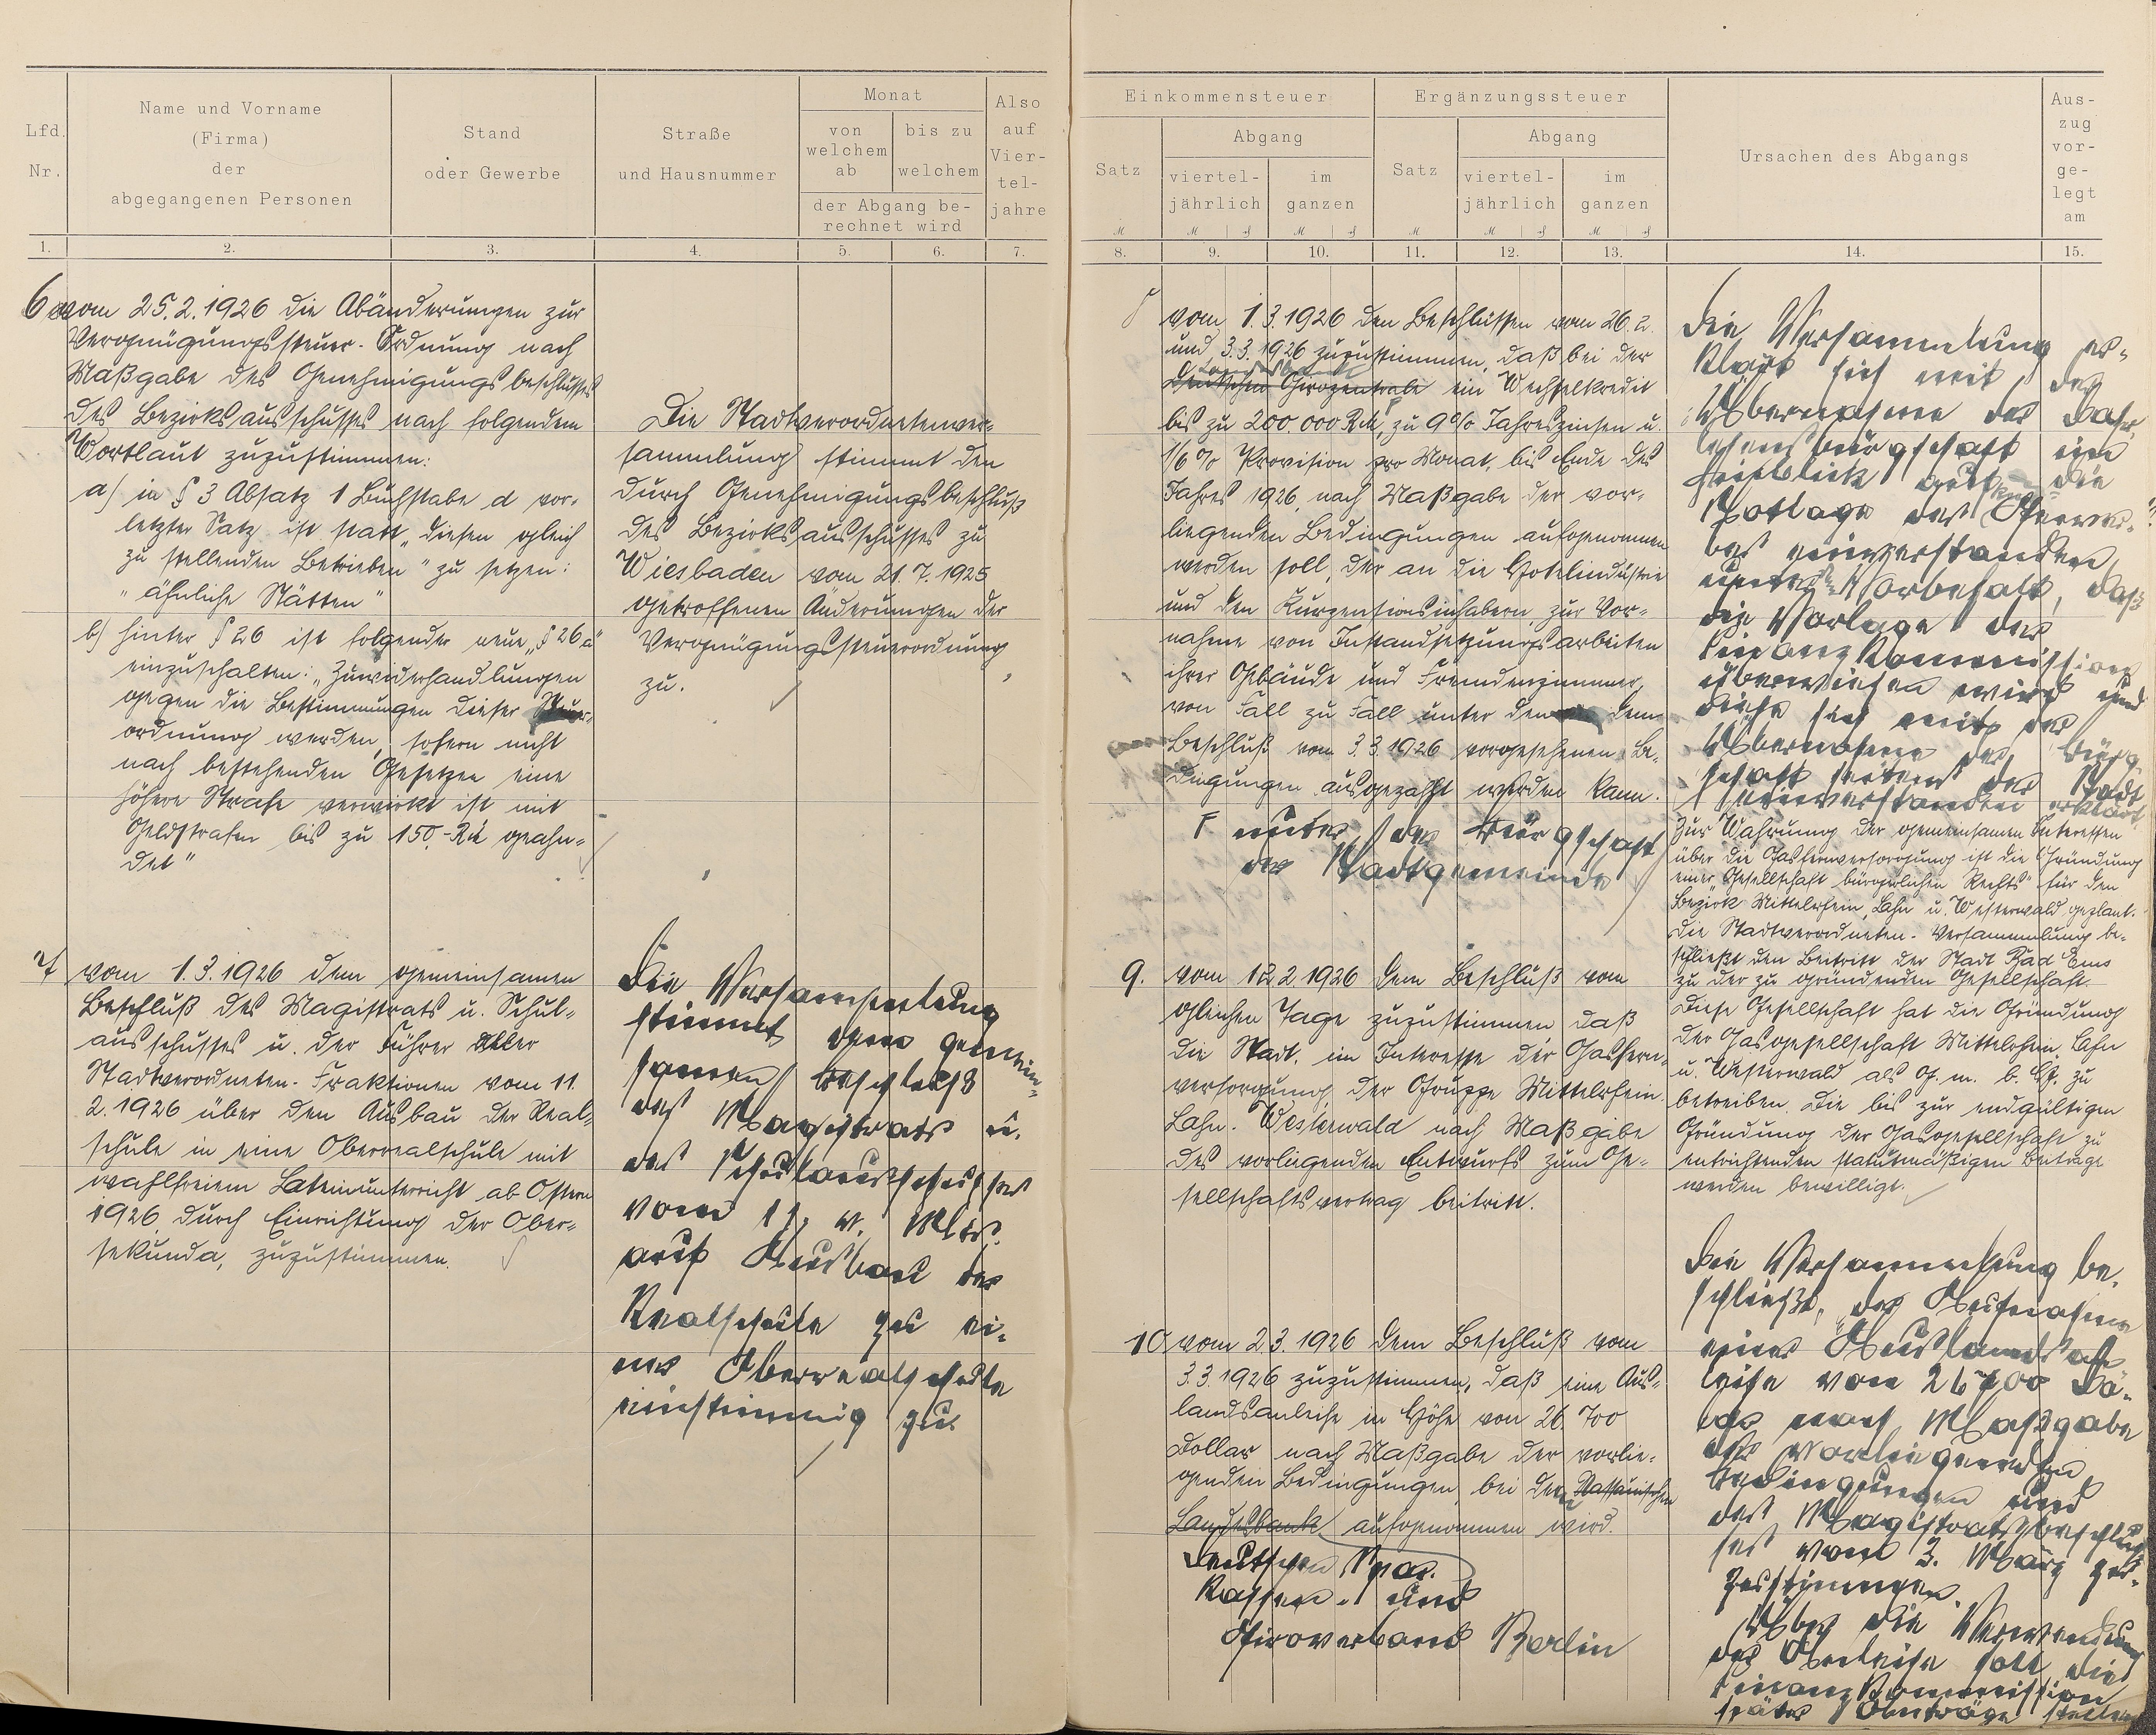 Lfd.
Nr.
Name und Vorname
(Firma)
der
abgegangenen Personen
Stand
oder Gewerbe
Straße
und Hausnummer
Monat
von
welchem
ab
bis zu
welchem
der Abgang be-
rechnet wird
Also
auf
Vier-
tel-
jahre
1.
2.
3.
4.
5.
6.
7.
6
vom 25.2.1926 die Abänderungen zur
Vergnügungssteuer-Ordnung nach
Maßgabe des Genehmigungsbeschlusses
des Bezirksausschusses nach folgendem
Wortlaut zuzustimmen:
a) in § 3 Absatz 1 Buchstabe d vor-
letzter Satz ist statt „diesen gleich
zu stellenden Betrieben" zu setzen:
"ähnliche Stätten"
b) hinter § 26 ist folgender neue „§ 26a"
einzuschalten: „Zuwiderhandlungen
gegen die Bestimmungen dieser Steuer-
ordnung werden, sofern nicht
nach bestehenden Gesetzen eine
höhere Strafe verwirkt ist mit
Geldstrafen bis zu 150,- RM geahn-
det"
Die Stadtverordnetenver-
sammlung stimmt den
durch Genehmigungsbeschluß
des Bezirksausschusses zu
Wiesbaden vom 21.7.1925
getroffenen Änderungen der
Vergnügungssteuerordnung
zu.
7
vom 1.3.1926 dem gemeinsamen
Beschluß des Magistrats u. Schul-
ausschusses u. der Führer aller
Stadtverordneten-Fraktionen vom 11.
2.1926 über den Ausbau der Real-
schule in eine Oberrealschule mit
wahlfreiem Lateinunterricht ab Ostern
1926, durch Einrichtung der Ober-
sekunda, zuzustimmen.
Die Versammlung
stimmt dem gemein-
samen Beschluß
des Magistrats u.
des Schulausschusses
vom 11. v. Mts.
auf Ausbau der
Realschule zu ei-
ner Oberrealschule
einstimmig zu.
Einkommensteuer
Ergänzungssteuer
Satz
Abgang
viertel-
jährlich
im
ganzen
Satz
Abgang
viertel-
jährlich
im
ganzen
Ursachen des Abgangs
Aus-
zug
vor-
ge-
legt
am
8.
9.
10.
11.
12.
13.
14.
15.
8
vom 1.3.1926 den Beschlüssen vom 26.2.
und 3.3.1926 zuzustimmen, daß bei der
Deutschen Girozentrale ein Wechselkredit
bis zu 200.000 RM, zu 9% Jahreszinsen u.
1/6% Provision pro Monat, bis Ende des
Jahres 1926, nach Maßgabe der vor-
liegenden Bedingungen aufgenommen
werden soll, der an die Hotelindustrie
und den Kurpensionsinhabern, zur Vor-
nahme von Instandsetzungsarbeiten
ihrer Gebäude und Fremdenzimmer,
von Fall zu Fall unter den dem
Beschluß vom 3.3.1926 vorgesehenen Be-
dingungen ausgezahlt werden kann.
F unter der Bürgschaft
der Stadtgemeinde
Die Versammlung er-
klärt sich mit der
Übernahme der Dar-
lehensbürgschaft im
Hinblick auf die
Notlage des Gewer-
bes einverstanden
unter Vorbehalt, daß
die Vorlage der
Finanzkommission
überwiesen wird und
diese sich mit der
Übernahme der Bürg-
schaft seitens der Stadt
einverstanden erklärt.
Zur Wahrung der gemeinsamen Interessen
über die Gasfernversorgung ist die Gründung
einer „Gesellschaft bürgerlichen Rechts" für den
Bezirk Mittelrhein, Lahn u. Westerwald geplant.
Die Stadtverordneten-Versammlung be-
schließt den Beitritt der Stadt Bad Ems
zu der zu gründenden Gesellschaft.
Diese Gesellschaft hat die Gründung
der Gasgesellschaft Mittelrhein, Lahn
u. Westerwald als G. m. b. H. zu
betreiben. Die bis zur endgültigen
Gründung der Gasgesellschaft zu
entrichtenden statutmäßigen Beiträge
werden bewilligt.
9.
vom 12.2.1926 dem Beschluß vom
gleichen Tage zuzustimmen daß
die Stadt, im Interesse der Gasfern-
versorgung, der Gruppe Mittelrhein-
Lahn-Westerwald nach Maßgabe
des vorliegenden Entwurfs zum Ge-
sellschaftsvertrag beitritt.
10
vom 2.3.1926 dem Beschluß vom
3.3.1926 zuzustimmen, daß eine Aus-
landsanleihe in Höhe von 26.700
Dollar nach Maßgabe der vorlie-
genden Bedingungen, bei der Nassauischen
Landesbank aufgenommen wird.
Deutschen Spar-
kassen- und
Giroverband Berlin
Die Versammlung be-
schließt, der Aufnahme
einer Auslandsan-
leihe von 26700 Do-
nach Maßgabe
der vorliegenden
Bedingungen und
des Magistratsbeschlus-
ses vom 3. März zu-
zustimmen.
Über die Verwendung
der Anleihe soll die
Finanzkommission
später Anträge stellen.